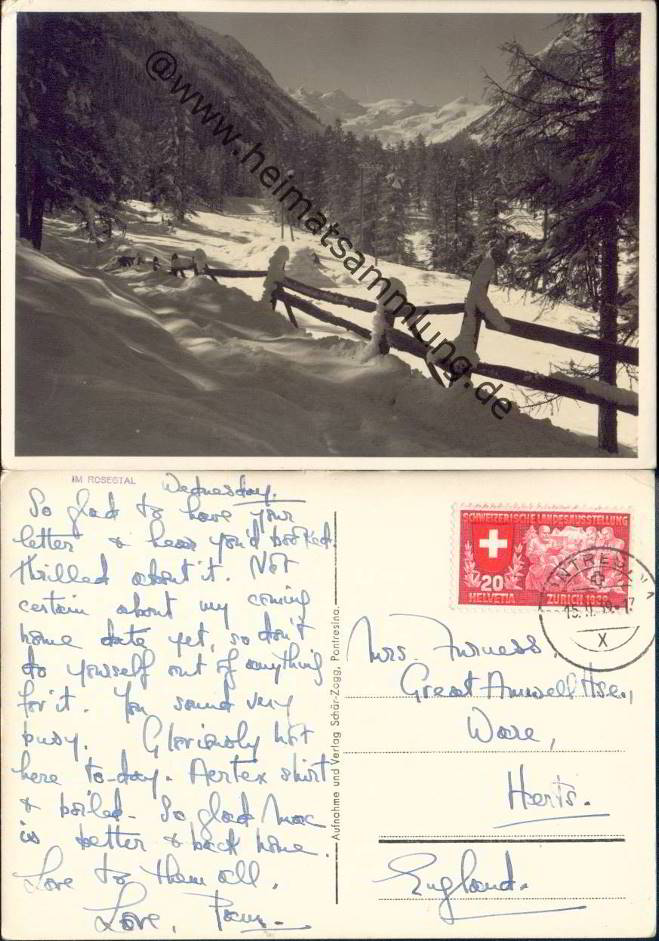 @www.heimatsammlung.de
IM ROSEGTAL
Wednesday.
So glad to have your
letter & hear you'd booked.
Thrilled about it. Not
certain about my coming
home date yet, so don't
do yourself out of anything
for it. You sound very
busy. Gloriously hot
here to-day. Aertex shirt
& boiled. So glad Mac
is better & back home.
Love to them all.
Love, Pam.
Aufnahme und Verlag Schär-Zogg, Pontresina.
SCHWEIZERISCHE LANDESAUSSTELLUNG
20
HELVETIA
ZURICH 1939
PONTRESINA
15.II.39.-17
X
Mrs. Furness,
Great Amwell Hse.,
Ware,
Herts.
England.